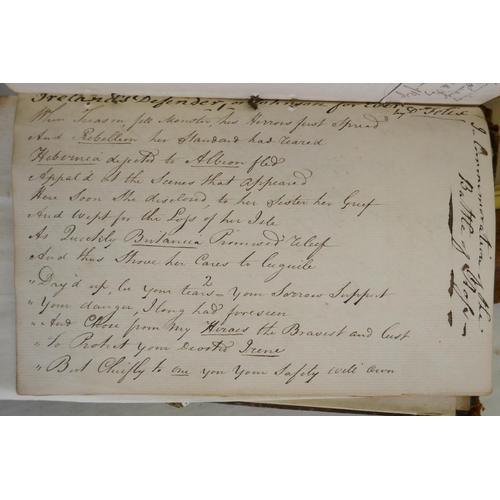 Ireland's Defender, or Johnson for ever
by Dr.
When Treason, fell Monster, her Horrors first Spread
And Rebellion her Standard had reared
Hibernea dejected to Albion fled
Appal'd at the Scenes that appeared
Here Soon She disclosed to her Sister her Grief
And Wept for the Loss of her Isle
As Quickly Britannia Promised Relief
And thus Strove her Cares to beguile
2
"Dry'd up, be your tears – Your Sorrows Support
"Your danger, I long had foreseen
"And Chose from My Heroes the Bravest and best
"to Protect your Devoted Irene
"But Chiefly to one you Your Safety will own
In Commemoration of the
Battle of Ross –